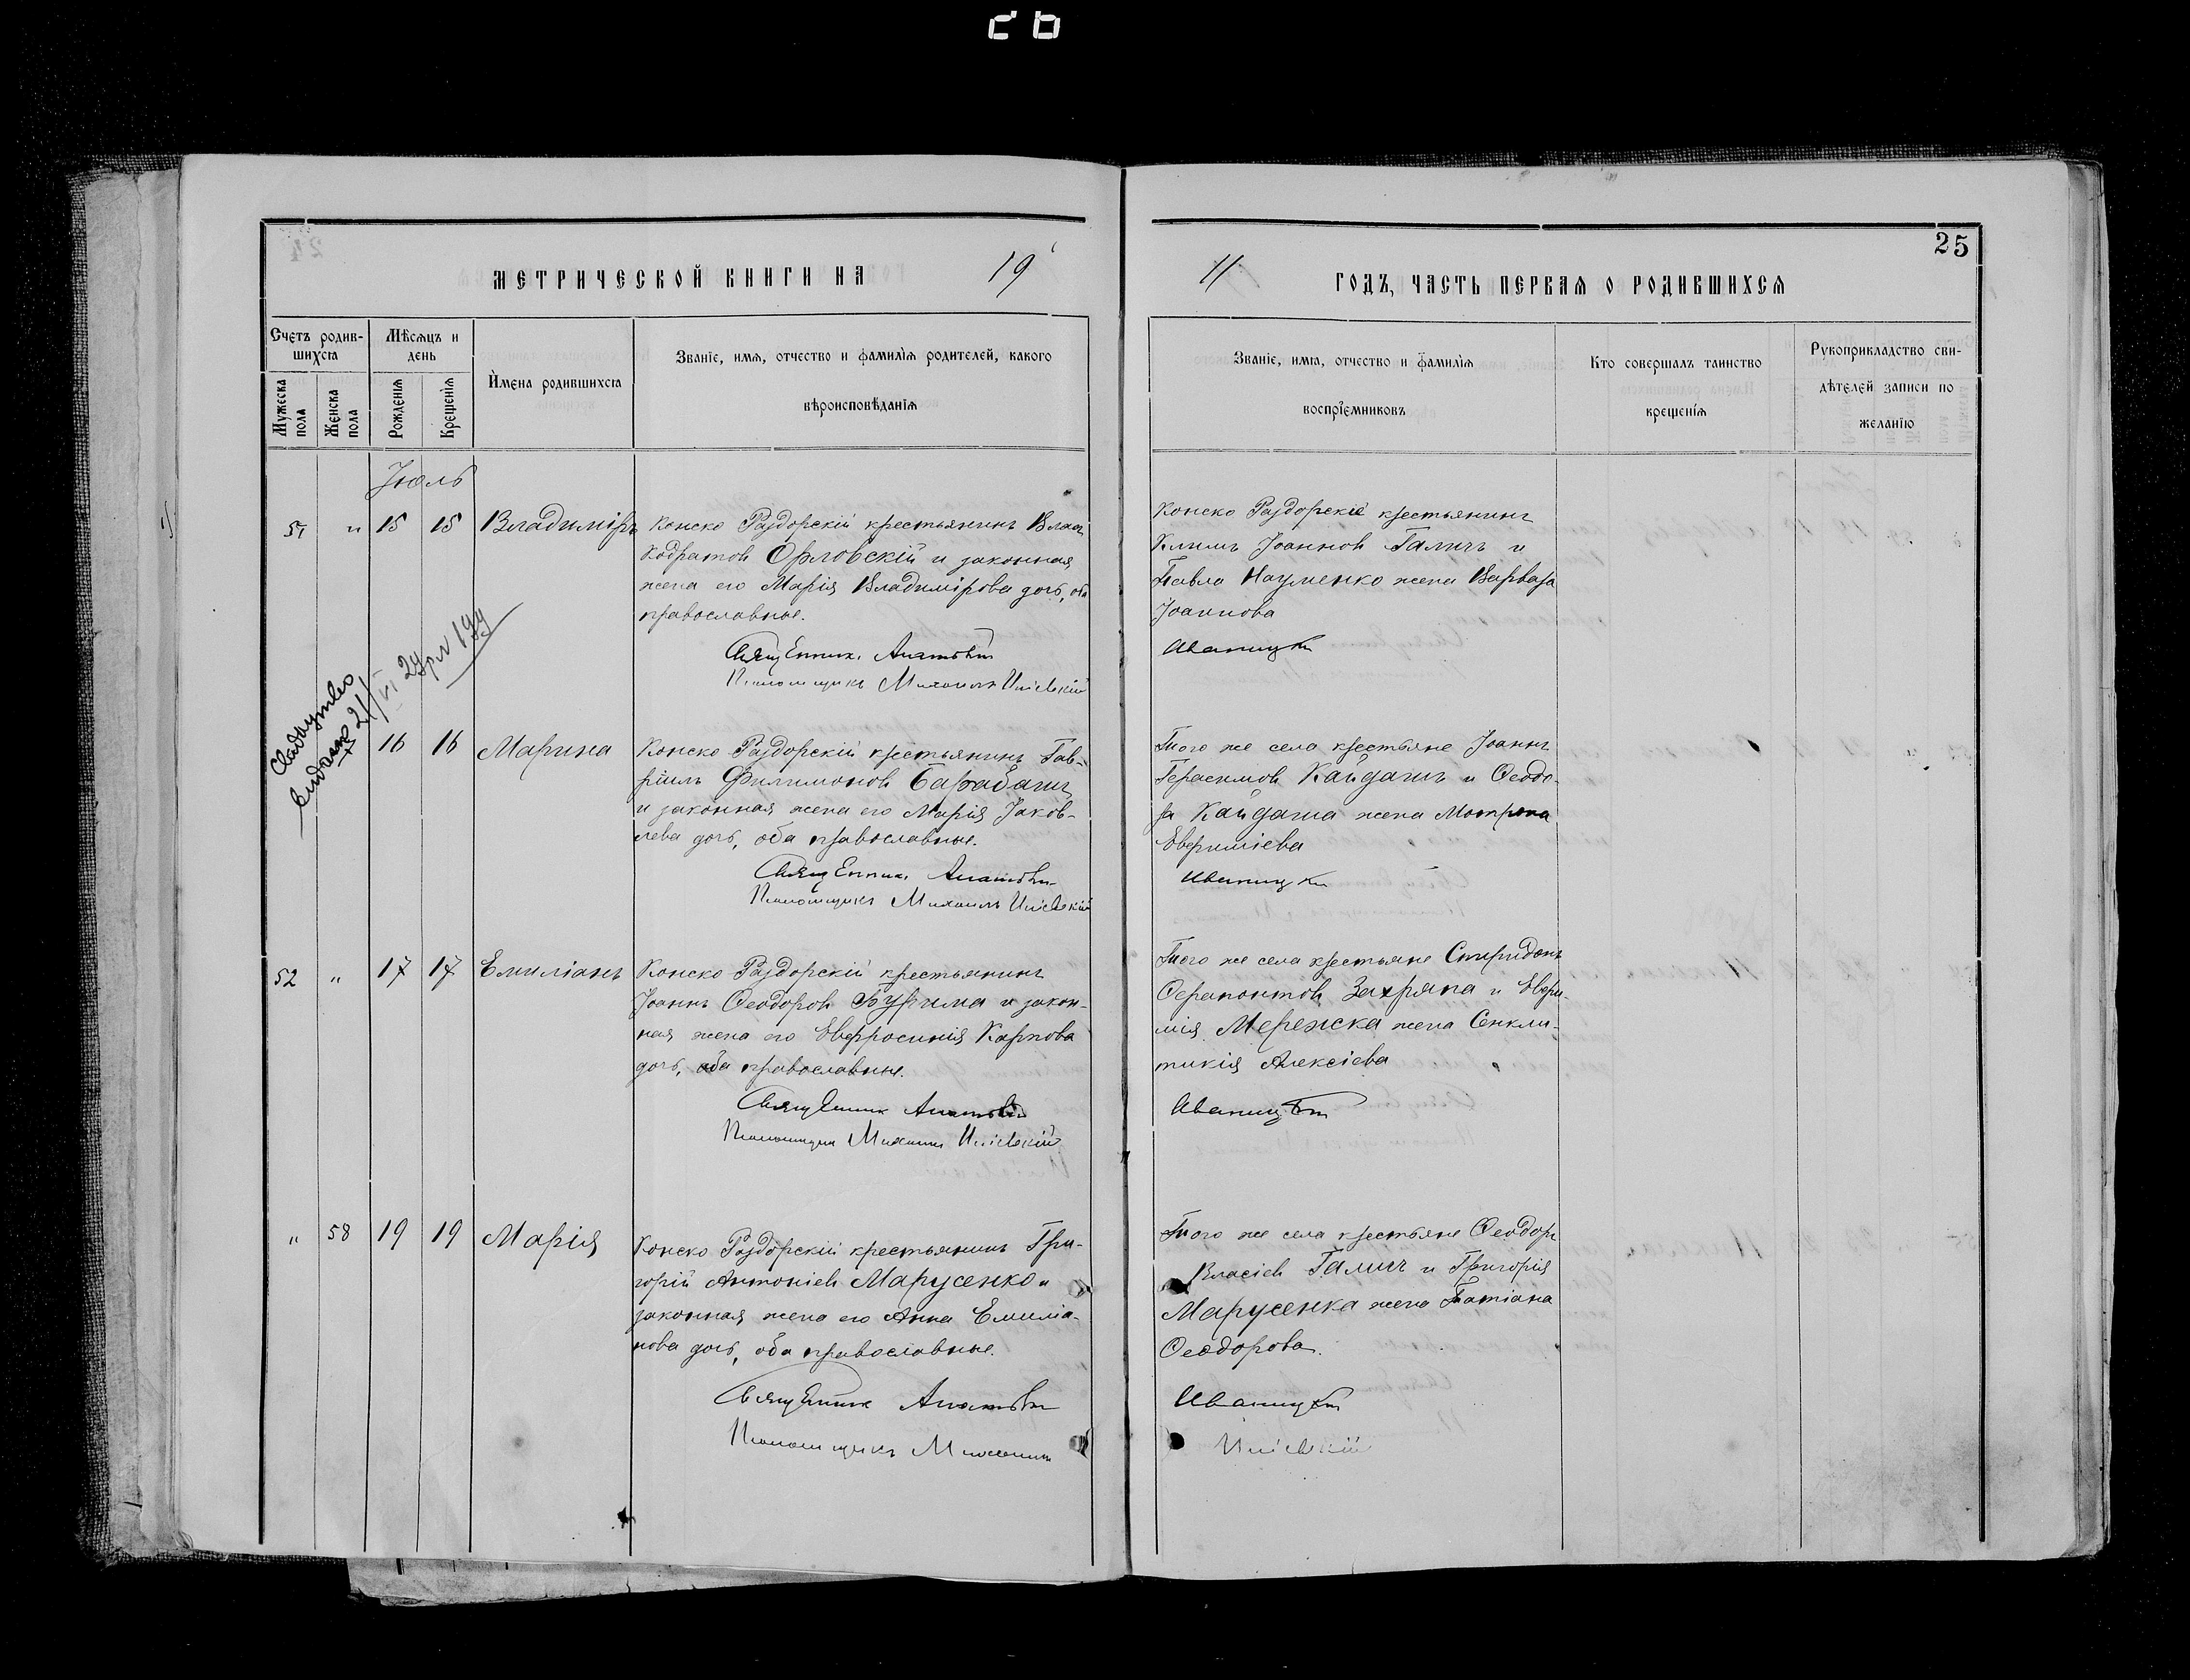 25
МЕТРИЧЕСКОЙ КНИГИ НА 1911 ГОДЪ, ЧАСТЬ ПЕРВАЯ О РОДИВШИХСЯ
Счетъ родив-
шихся
Мужеска
пола
Женска
пола
Мѣсяцъ и
день
Рожденія
Крещенія
Имена родившихся
Званіе, имя, отчество и фамилія родителей, какого
вѣроисповѣданія
Званіе, имя, отчество и фамилія
воспріемниковъ
Кто совершалъ таинство
крещенія
Рукоприкладство сви-
дѣтелей записи по
желанію
Іюль
51 " 15 15 Владиміръ
Конско Раздорскій крестьянинъ Влас
Кодратов Орловскій и законная
жена его Марія Владимірова дочь, оба
православные.
Священник
Псаломщикъ Михаилъ
Конско Раздорскіе крестьянинъ
Климъ Іоаннов Галичъ и
Павла Науменко жена Варвара
Іоаннова
Иваницкій
Свидоцтво
видане 21/VI
16 16 Марина
Конско Раздорскій крестьянинъ Гав-
ріилъ Филимонов Барабашъ
и законная жена его Марія Іаков-
лева дочь, оба православные.
Священник
Псаломщикъ Михаилъ
Того же села крестьяне Іоаннъ
Герасимов Кайдашъ и Ѳеодо-
ра Кайдаша жена Мотрона
Евфиміева
Иваницкій
52 " 17 17 Емиліанъ
Конско Раздорскій крестьянинъ
Іоаннъ Ѳеодоров Бурима и закон-
ная жена его Евфросинія Карпова
дочь, оба православные.
Священник
Псаломщик Михаил
Того же села крестьяне Спиридонъ
Ѳерапонтов Захряпа и Евфи-
мія Мережка жена Синкли-
тикія Алексіева
Иваницкій
" 58 19 19 Марія
Конско Раздорскій крестьянинъ Гри-
горій Антоніев Марусенко и
законная жена его Анна Емиліа-
нова дочь, оба православные.
Священник
Псаломщикъ Михаилъ
Того же села крестьяне Ѳеодоръ
Власіев Галичъ и Григорія
Марусенка жена Татіана
Ѳеодорова.
Иваницкій